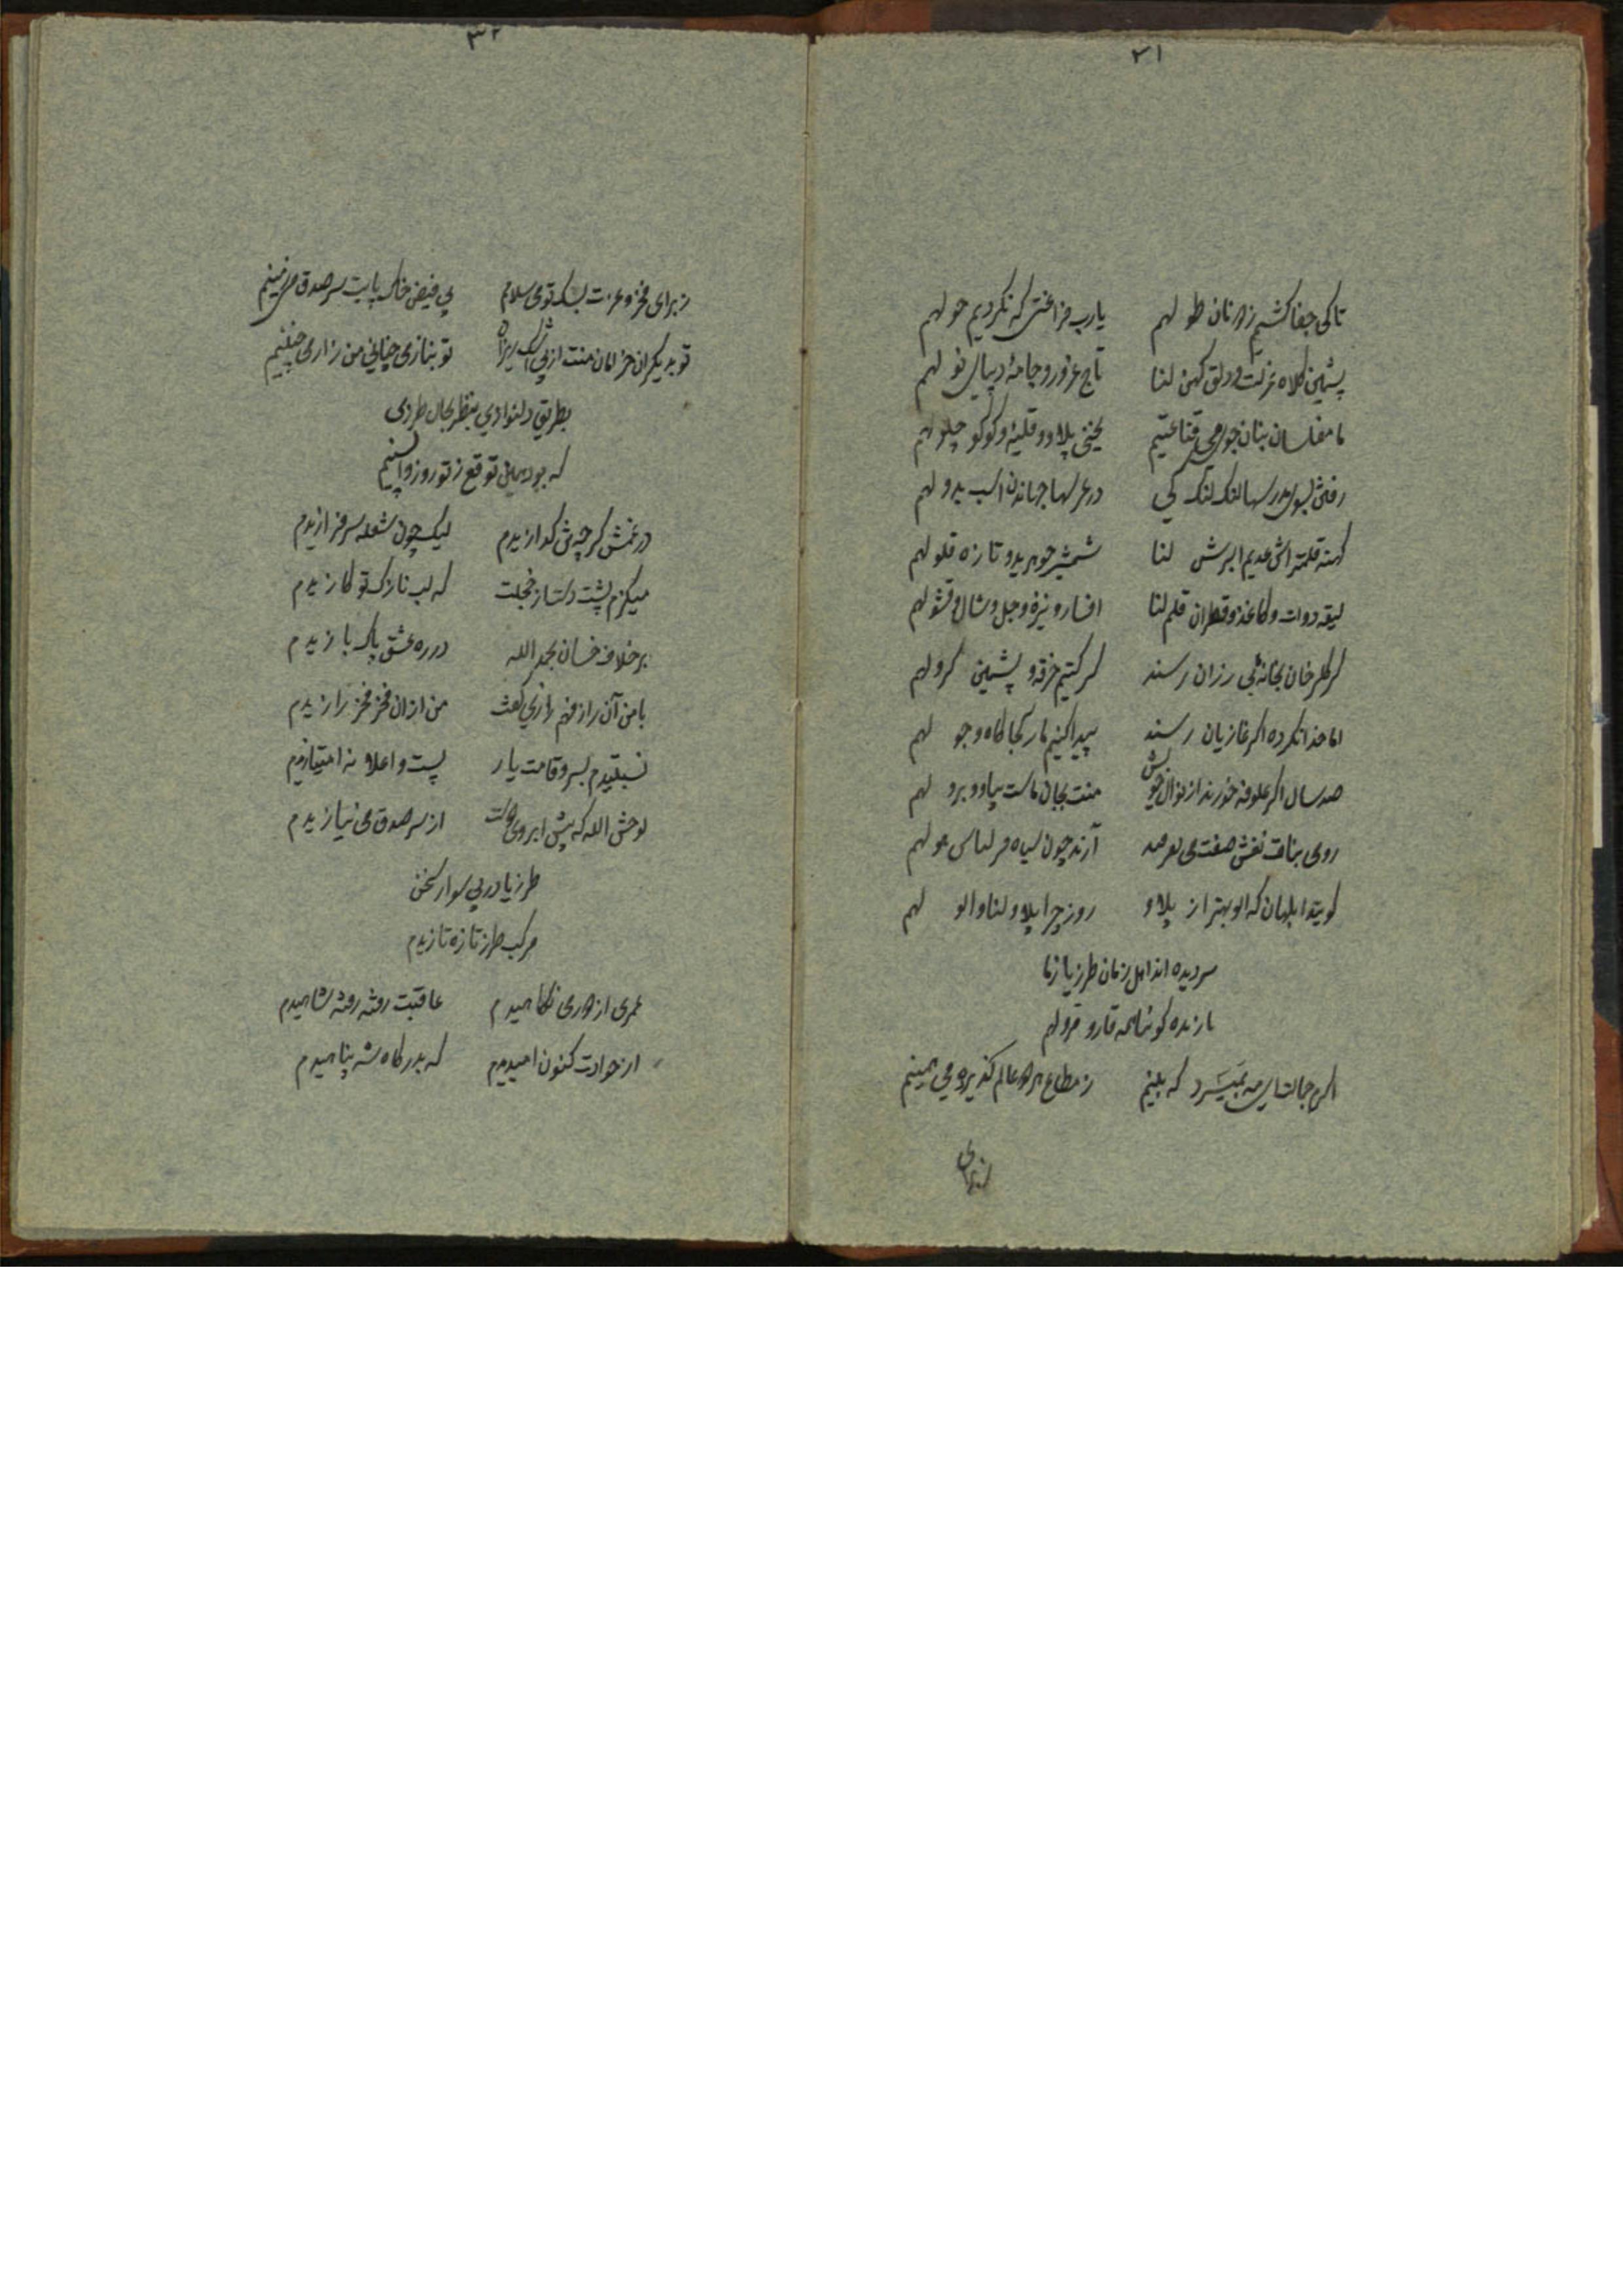 ۳۱
تا کی جفا کشیم ز دونان طو لهم یارب فراغتی که نکردیم حو لهم
پشمین کلاه عزلت و دلق کهن لنا تاج غرور و جامهٔ دیبای نو لهم
ما مفلسان بنان جوی قناعتیم یخنی پلاو و قلیه و کوکو چلو لهم
رفتن بسوی مدرسها لنک لنک کی در عرلها جهاندن اسب بدو لهم
کهنه قلمتراش عدیم البرش لنا شمشیر جوهرید و تازه قلو لهم
لیقه دوات و کاغذ و قطران قلم لنا افسار و نیزه و جل و شال و قشو لهم
کر کلرخان بخانه بی رزان رسند کر کنیم خرقه و پشمین کرو لهم
اما خدا نکرده اکر غازیان رسند پیدا کنیم ما ز کجا کاه و جو لهم
صد سال اکر علوفه خورند از نوال خویش منت بجان ماست بیا و و برو لهم
روی بنات نعش صفت آرند چون سیاه در لباس مو لهم
کویند ابلهان که الو بهتر از پلاو روز چرا پلاو لنا و الو لهم
سردیده اند اهل زمان طرزیا ز ما
قارو قرو لهم
اکرم جمالت ای مه که بینم ز مطاع هر دو عالم کذیرده می همینم
ز برای
۳۲
ز برای فخر و عزت بسک تومی سلامم پی فیض خاک پایت سر صدق می زمینم
تو بدیکران خرامان منت از پی اشک ریزان تو بنازی چنانی من زاری چنینم
بطریق دلنوازی بنظر بحال طرزی
که بود همین توقع ز تو روز واپسینم
در غمش کرچه می کدازیدم لیک چون شعله سر فرازیدم
میکزم پشت دست از خجلت که لب نازک تو کازیدم
بر خلاف خسان بحمد الله در ره عشق پاک بازیدم
با من آن راز فهم رازی کفت من از ان فخر فخر رازیدم
نسبتیدم بسرو قامت یار پست و اعلا نه امتیازیدم
لوحش الله که پیش ابروی دوست از سر صدق می نیازیدم
طرزیا در پی سوار سخن
مرکب طرز تازه تازیدم
عمری از دوری نکاهیدم عاقبت رفته رفته شاهیدم
از حوادث کنون امیدیدم که بدرکاه شه پناهیدم